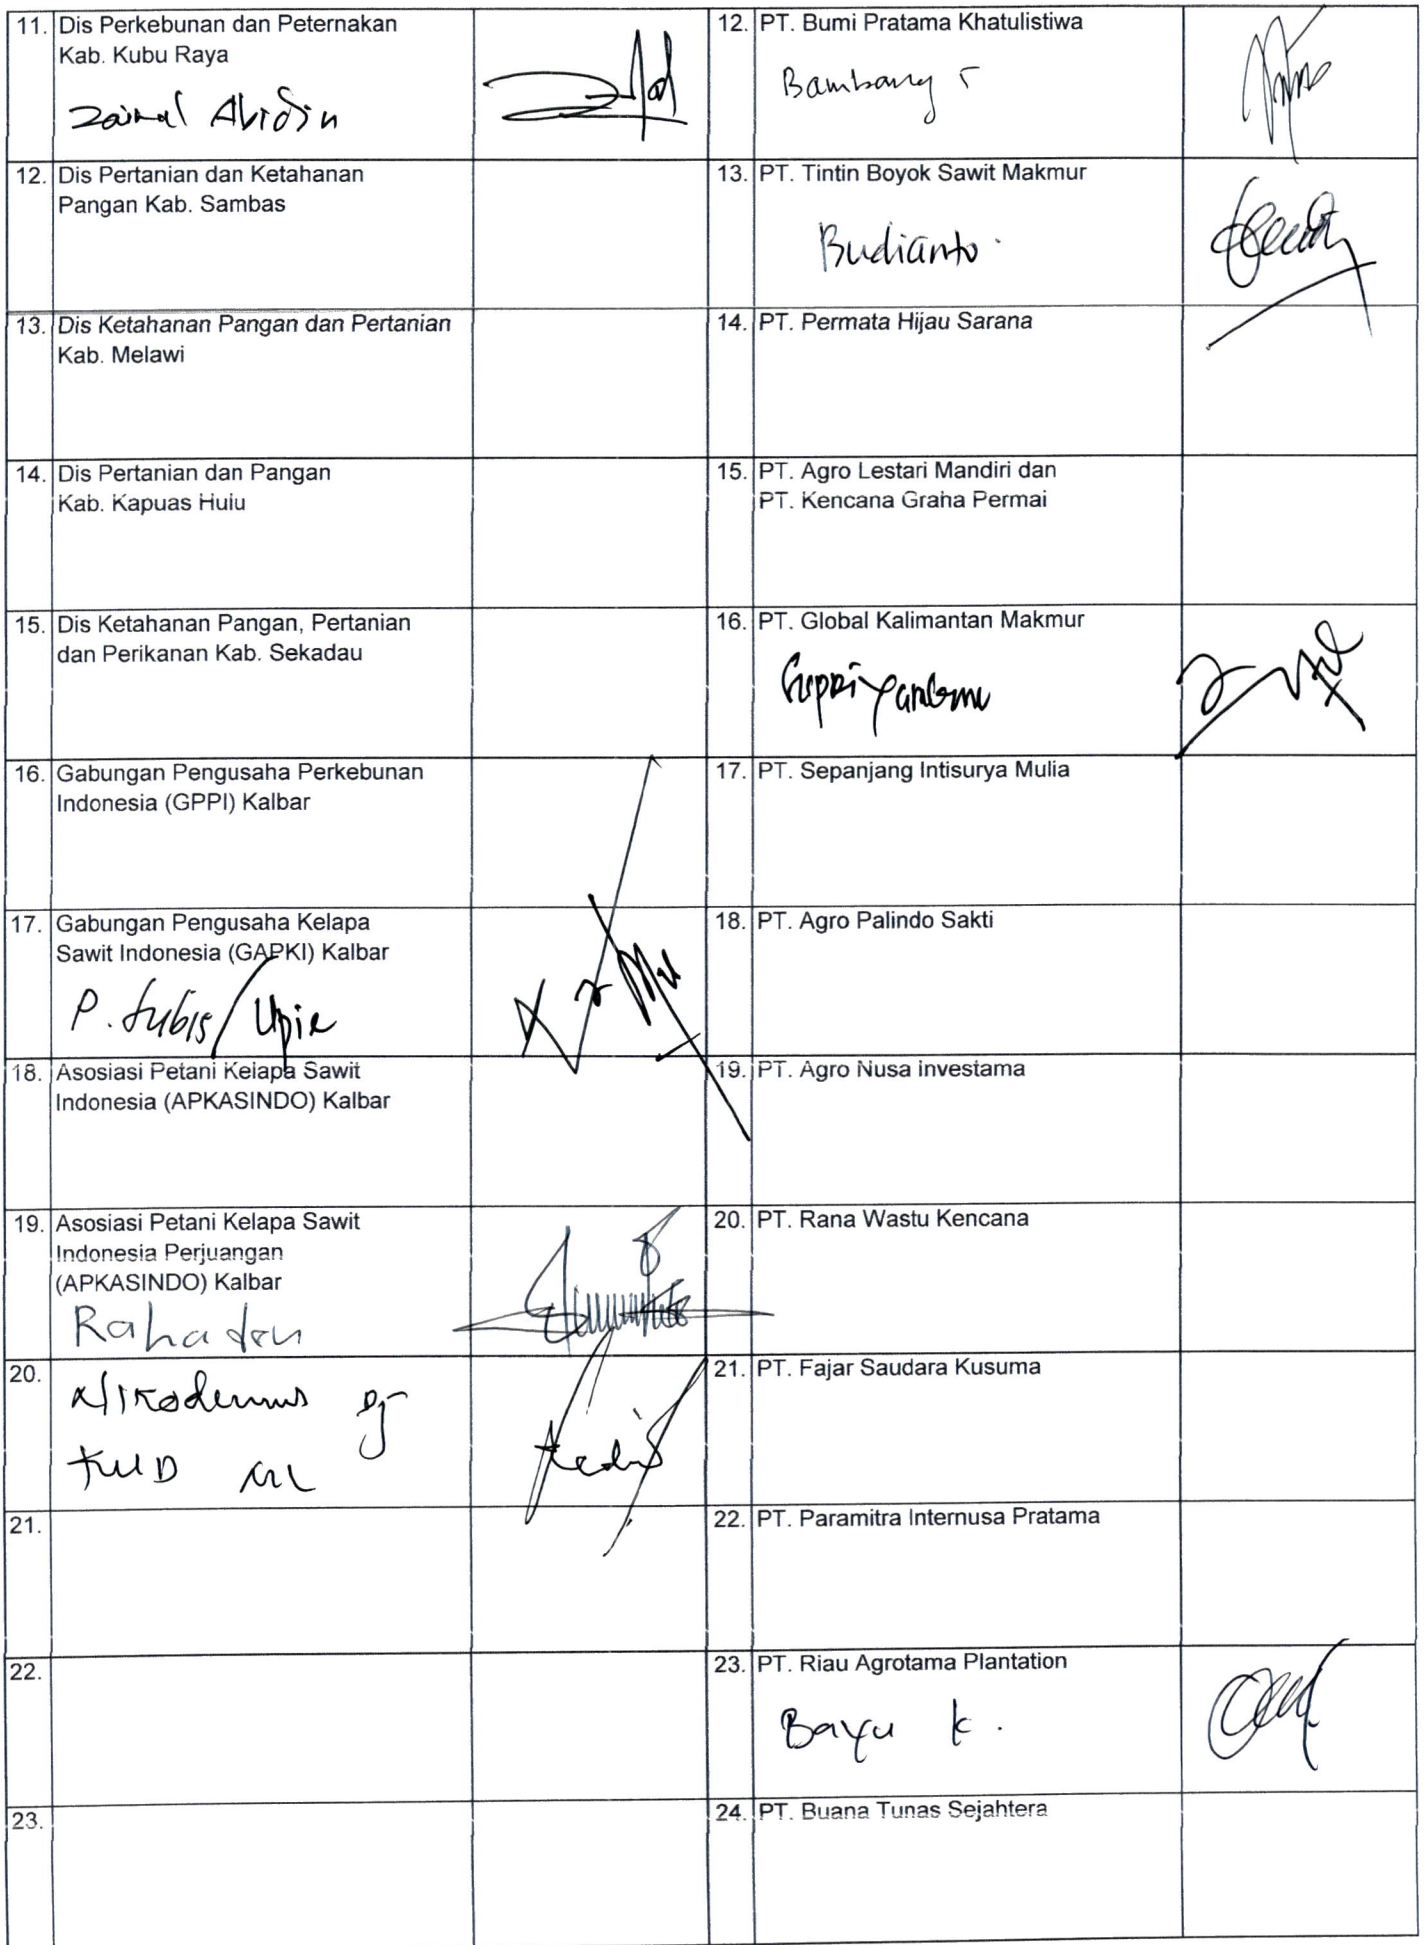 11. Dis Perkebunan dan Peternakan
Kab. Kubu Raya
Zainal Abidin
12. PT. Bumi Pratama Khatulistiwa
Bambang
12. Dis Pertanian dan Ketahanan
Pangan Kab. Sambas
13. PT. Tintin Boyok Sawit Makmur
Budianto
13. Dis Ketahanan Pangan dan Pertanian
Kab. Melawi
14. PT. Permata Hijau Sarana
14. Dis Pertanian dan Pangan
Kab. Kapuas Hulu
15. PT. Agro Lestari Mandiri dan
PT. Kencana Graha Permai
15. Dis Ketahanan Pangan, Pertanian
dan Perikanan Kab. Sekadau
16. PT. Global Kalimantan Makmur
16. Gabungan Pengusaha Perkebunan
Indonesia (GPPI) Kalbar
17. PT. Sepanjang Intisurya Mulia
17. Gabungan Pengusaha Kelapa
Sawit Indonesia (GAPKI) Kalbar
P. Lubis/
18. PT. Agro Palindo Sakti
18. Asosiasi Petani Kelapa Sawit
Indonesia (APKASINDO) Kalbar
19. PT. Agro Nusa investama
19. Asosiasi Petani Kelapa Sawit
Indonesia Perjuangan
(APKASINDO) Kalbar
20. PT. Rana Wastu Kencana
20. Nikodemus
KUD
21. PT. Fajar Saudara Kusuma
21.
22. PT. Paramitra Internusa Pratama
22.
23. PT. Riau Agrotama Plantation
Bayu K.
23.
24. PT. Buana Tunas Sejahtera